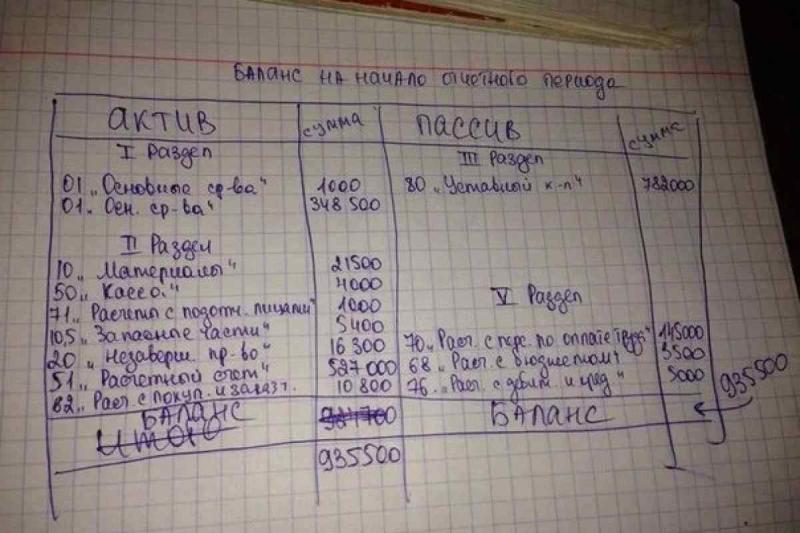 Баланс на начало отчетного периода
Актив сумма Пассив сумма
I Раздел III Раздел
01 „Основные ср-ва" 1000 80 „Уставный к-л" 782000
01„ Осн. ср-ва" 348 500
II Раздел
10„ Материалы" 21500
50„ Касса." 4000 V Раздел
71„ Расчеты с подотч. лицами" 1000
10,5 „ Запасные части" 5400 70„ Расч. с перс. по оплате труда" 145000
20 „ Незаверш. пр-во" 16 300 68„ Расч. с бюджетом" 3500
51„ Расчетный счет" 527 000 76„ Расч. с дебит. и кред" 5000 935500
62„ Расч. с покуп. и заказч. 10 800
Баланс Баланс
Итого
935500